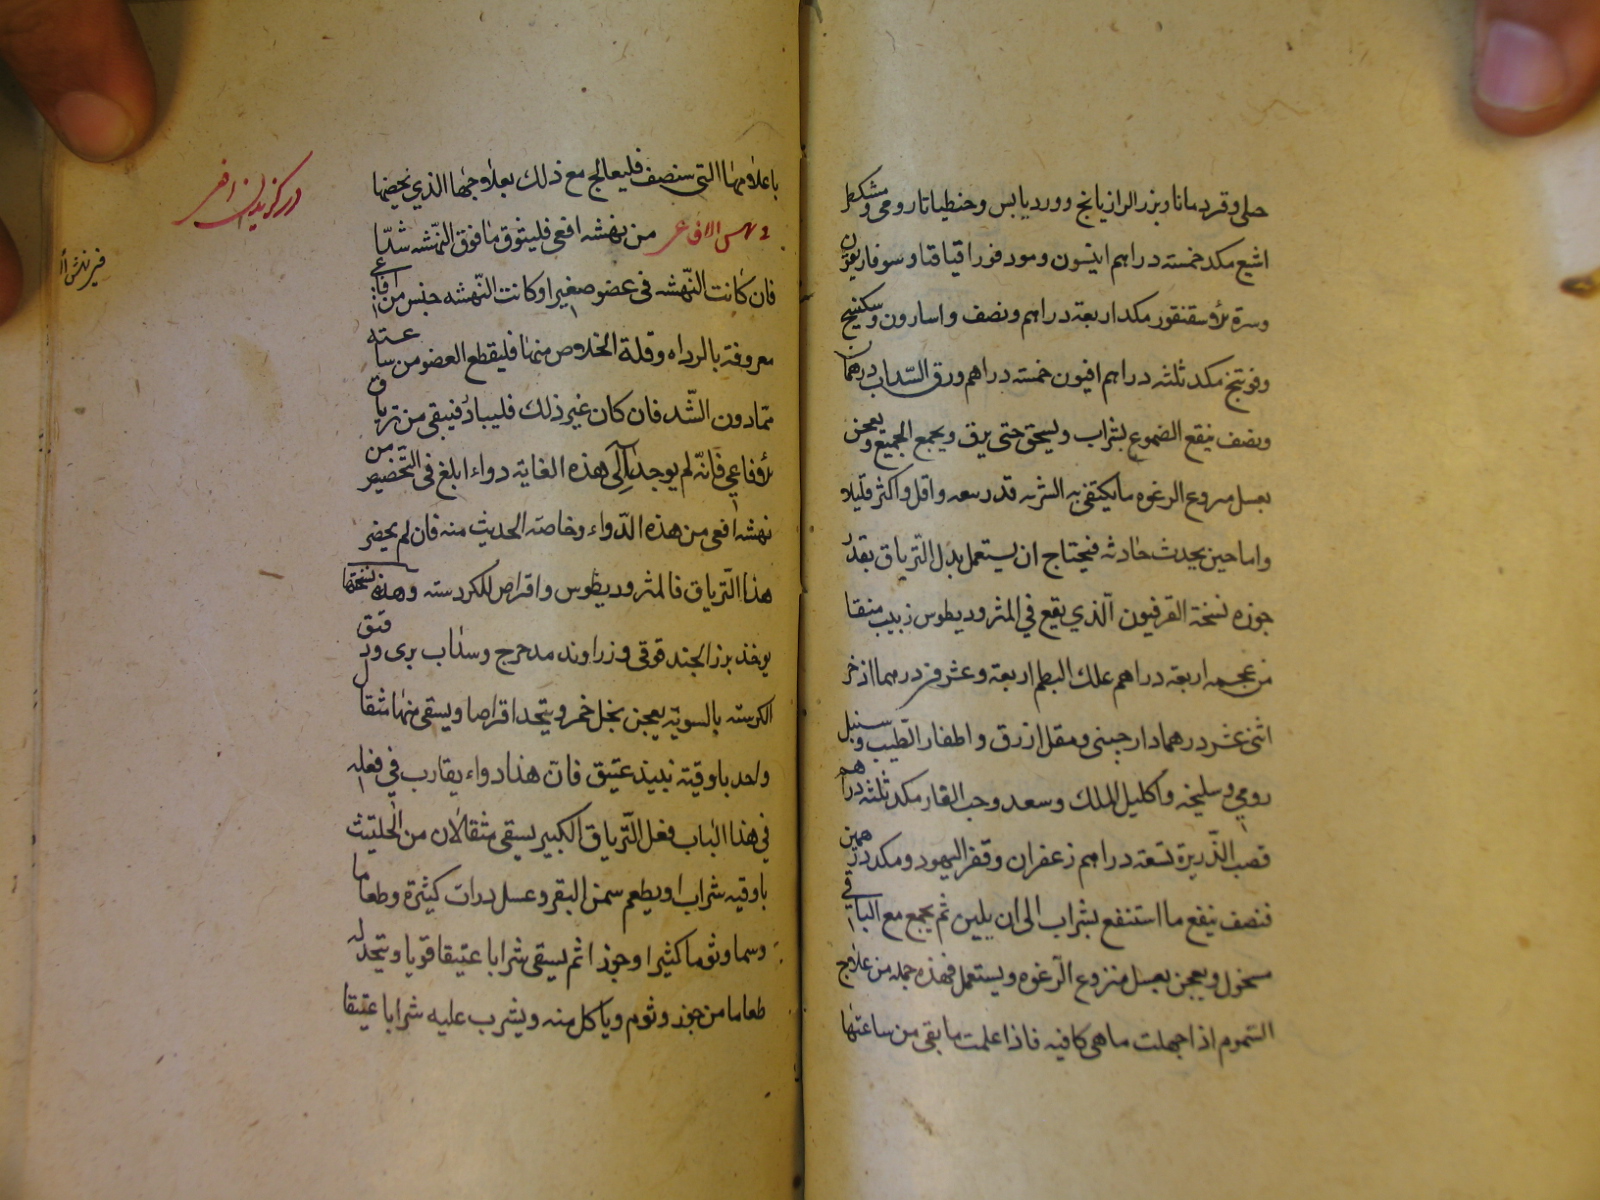 حلى وقردمانا وبزر الرازيانج وورد يابس وحنطيانا رومى ومشكطر
اشيع مكد خمسته دراهم انيسون ومو وفو راقياقنا وسوفاريقون
وسرة سقنقور مكد اربعة دراهم ونصف واسارون وسكبينج
وفوتنج مكد ثلثه دراهم افيون خمسته دراهم ورق السّداب درهما
ونصف ينقع الضموع بشراب ويسحق حتى يرق ويجمع الجميع ويعجن
بعسل منزوع الرغوه ما يكتفى به الشربه قدر سعه واقل واكثر قليلا
واما حين يحدث حادثه فيحتاج ان يستعمل بدل التّرياق بقدر
جوزه نسخة القرفيون الّذي يقع في المثروديطوس زبيب منقا
من عجمه اربعة دراهم علك البطم اربعة وعشرون درهما اذخر
اثنى عشر درهما دارجينى ومقل ازرق واطفار الطيب وسنبل
رومي وسليخه واكليل الملك وسعد وحب القار مكد ثلثه دراهم
قصب الذّريرة تسعة دراهم زعفران وقفر اليهود ومكد درهمين
فنصف ينقع ما استنقع بشراب الى ان يلين ثم يجمع مع الباقي
مسخول ويعجن بعسل منزوع الرغوه ويستعمل فهذه جمله من علاج
السّموم اذا جهلت ما هى كافيه فاذا علمت ما بقى من ساعتها
باعلامها التى سنصف فليعالج مع ذلك بعلاجها الذي يخصها
در گزیدن افعی
نهس الافاعى من نهشه افعى فليتوق ما فوق النّهشه شدّا
فان كانت النّهشه فى عضو صغير او كانت النّهشه جنس من افاعى
معروفة بالرداه وقلة الخلاص منها فليقطع العضو من ساعته
متا دون الشّد فان كان غير ذلك فليبادر فيسقى من ترياق
الافاعي فانّه لم يوجد الى هذه الغاية دواء ابلغ فى التّخضيص من
نهشه افعى من هذه الدّواء وخاصته الحديث منه فان لم يحضر
هذا التّرياق فالمثروديطوس واقراص للكرسته وهذه نسختها
يوخذ بزر الجندقوقى وزراوند مدحرج وسداب برى ودقيق
الكرسته بالسويّه يعجن بخل خمر ويتحد اقراصا ويسقى منها مثقا
واحد باوقية نبيذ عتيق فان هذا دواء يقارب في فعله
في هذا الباب فعل التّرياق الكبير يسقى مثقالان من الحلتيث
باوقيه شراب او يطعم سمن البقر وعسل درات كثيرة وطعاما
وسما وثوما كثيرا وجوزا ثم يسقى شرابا عتيقا قويا ويتحد له
طعاما من جوز وثوم وياكل منه ويشرب عليه شرابا عتيقا